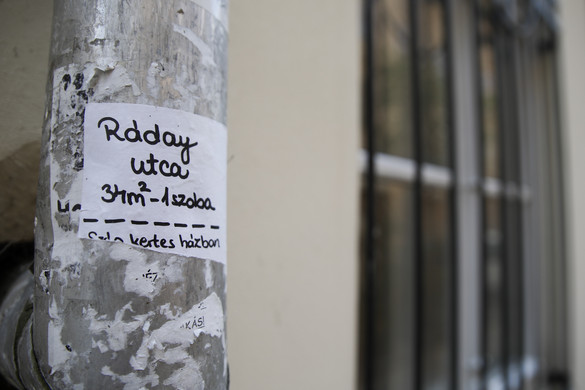 Ráday
utca
34m²-1szoba
kertes házban
KÁS